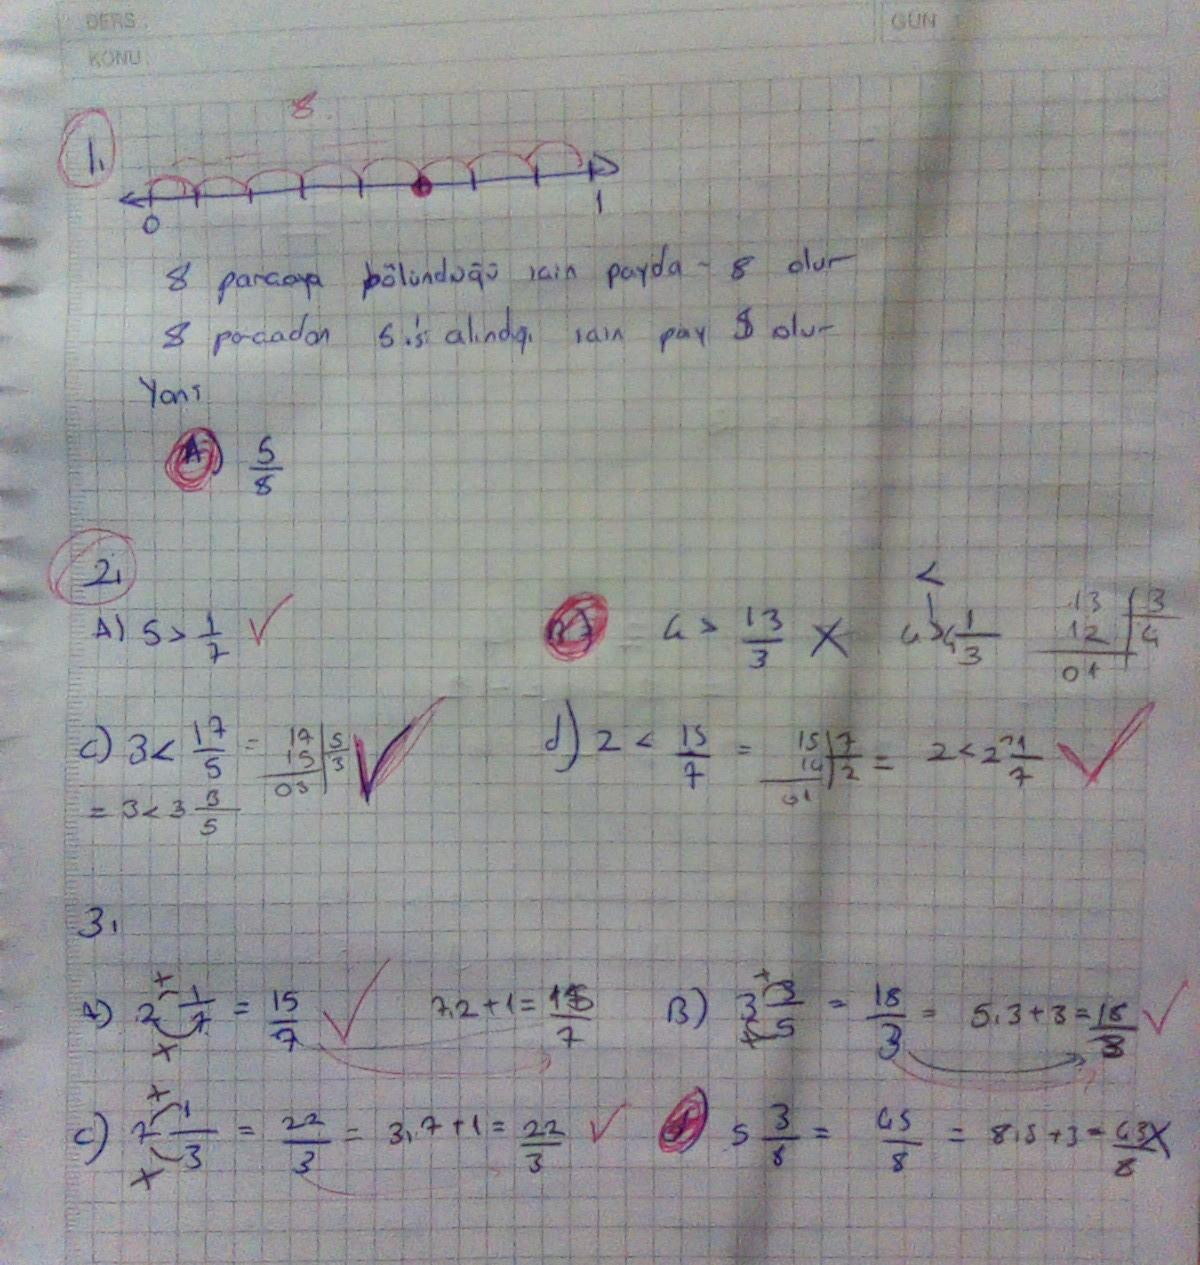 DERS : GÜN :
KONU :
8
1.
0 1
8 parçaya bölündüğü için payda - 8 olur
8 parçadan 5.si alındığı için pay 5 olur
Yani
A) 5/8
2.
A) 5 > 1/7 ✓ B) 4 > 13/3 X < 4 > 4 1/3 13 | 3 12 | 4 01
C) 3 < 17/5 = 17 | 5 15 | 3 03 ✓ d) 2 < 15/7 = 15 | 7 14 | 2 01 = 2 < 2 1/7 ✓
= 3 < 3 3/5
3.
A) 2 1/7 = 15/7 ✓ 7.2+1 = 15/7 B) 3 3/5 = 18/3 = 5.3+3 = 18/3 ✓
C) 7 1/3 = 22/3 = 3.7+1 = 22/3 ✓ d) 5 3/8 = 45/8 = 8.5+3 = 43/8 X